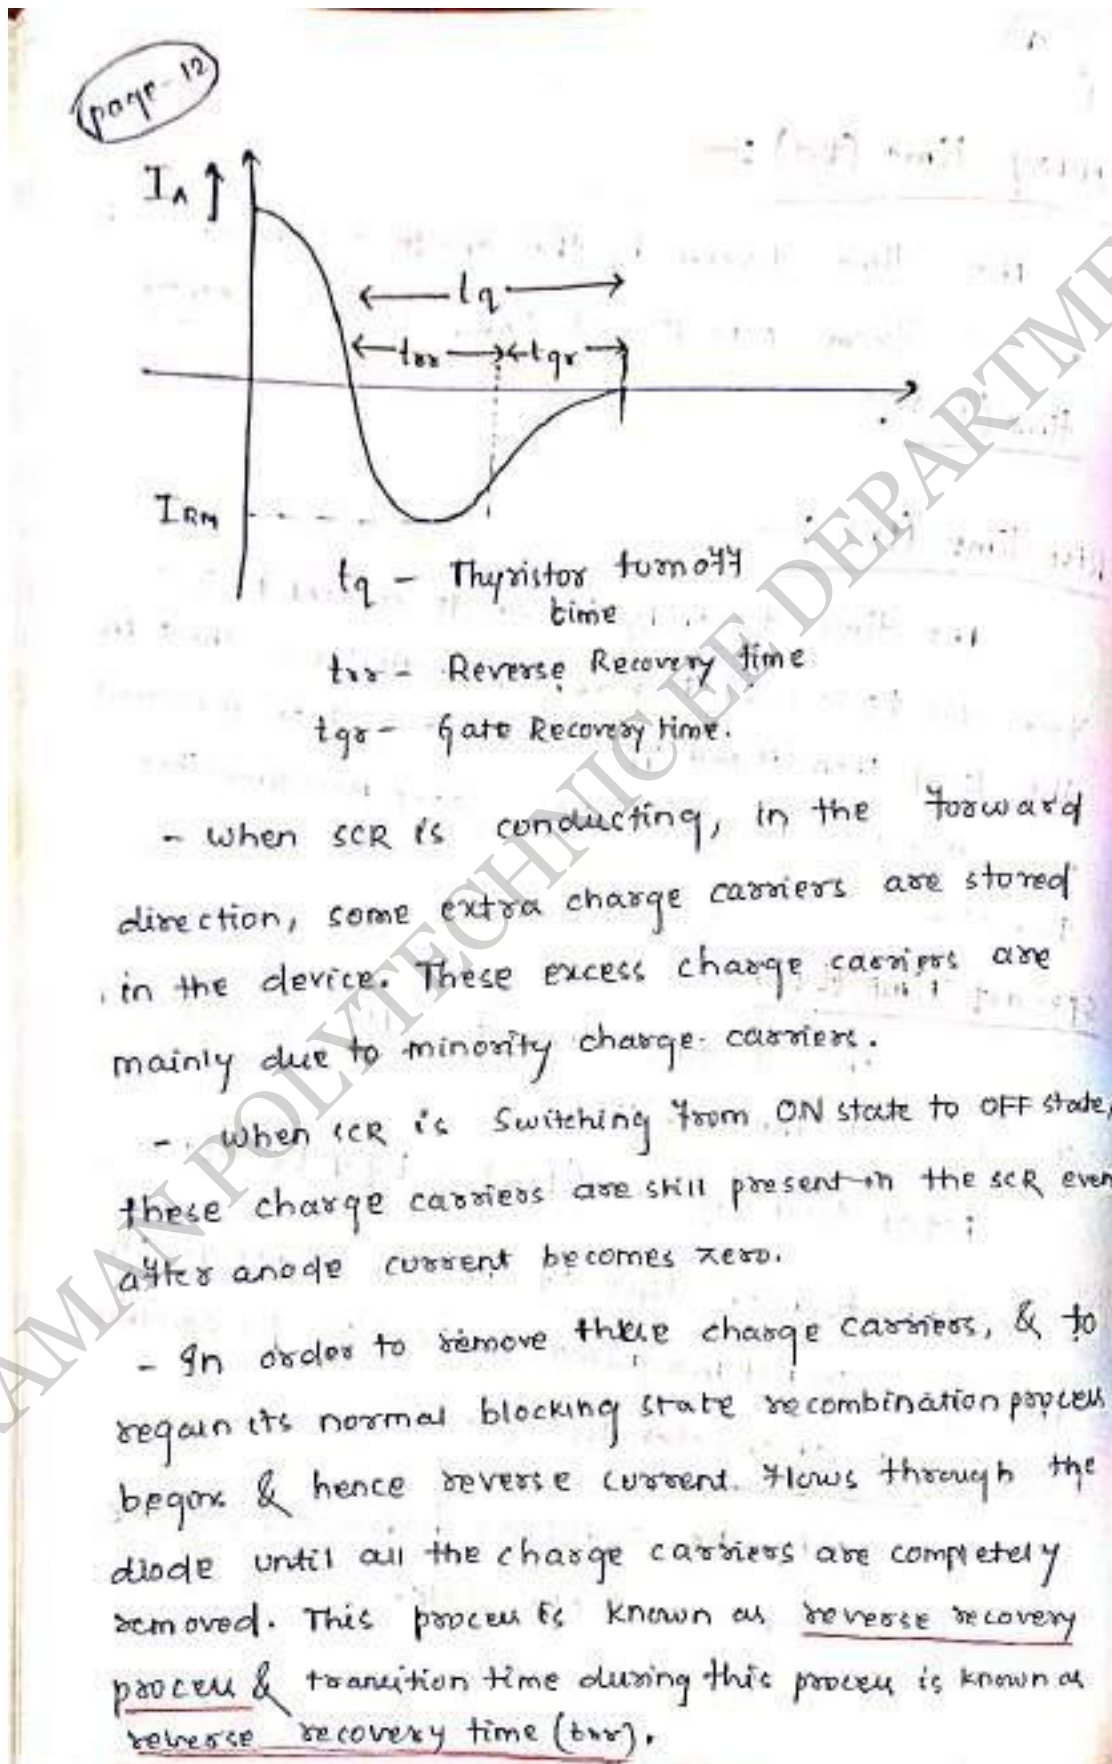 page-12
I_A ↑
t_q
t_rr t_gr
I_RM
t_q - Thyristor turnoff
time
t_rr - Reverse Recovery time
t_gr - Gate Recovery time.
- When SCR is conducting, in the forward
direction, some extra charge carriers are stored
in the device. These excess charge carriers are
mainly due to minority charge carriers.
- When SCR is Switching from ON state to OFF state,
these charge carriers are still present in the SCR even
after anode current becomes zero.
- In order to remove these charge carriers, & to
regain its normal blocking state recombination process
begins & hence reverse current flows through the
diode until all the charge carriers are completely
removed. This process is known as reverse recovery
process & transition time during this process is known as
reverse recovery time (trr).
AMAN POLYTECHNIC EE DEPARTME